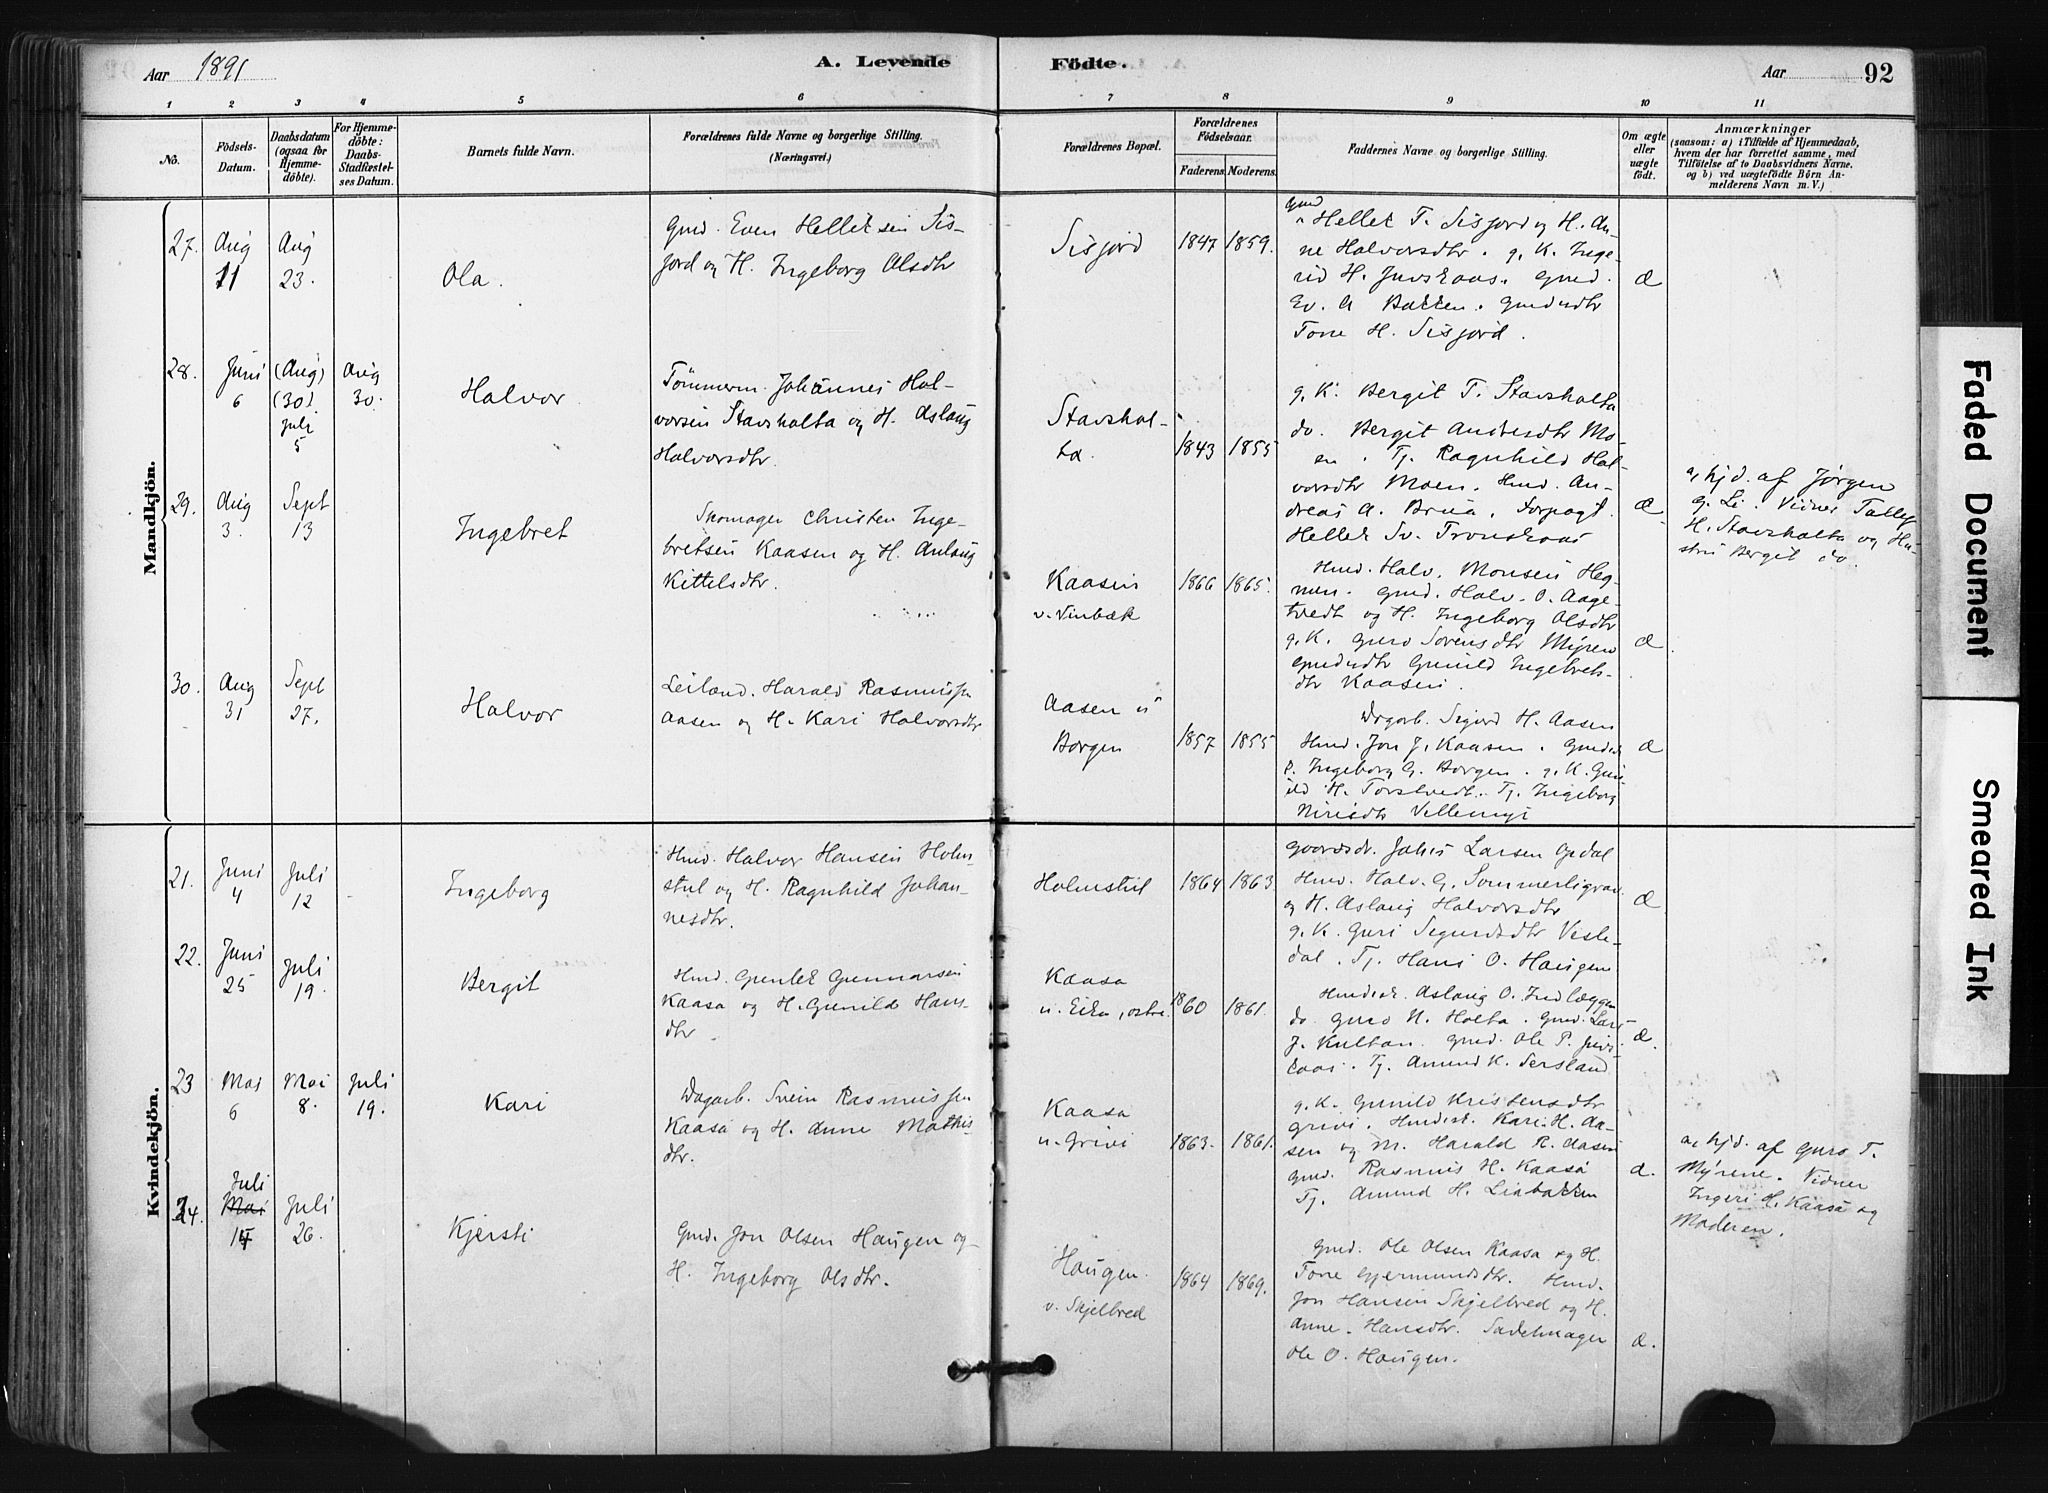 Aar 1891
A. Levende
Födte.
Aar 92
1 2 3 4 5 6 7 8 9 10 11
No.
Födsels-
Datum.
Daabsdatum
(ogsaa for
Hjemme-
döbte).
For Hjemme-
döbte:
Daabs-
Stadfæstel-
ses Datum.
Barnets fulde Navn.
Forældrenes fulde Navne og borgerlige Stilling.
(Næringsvei.)
Forældrenes Bopæl.
Forældrenes
Födselsaar.
Faderens. Moderens.
Faddernes Navne og borgerlige Stilling.
Om ægte
eller
uægte
födt.
Anmærkninger
(saasom: a) i Tilfælde af Hjemmedaab,
hvem der har forrettet samme, med
Tilföielse af to Daabsvidners Navne.
og b) ved uægtefödte Börn An-
melderens Navn m. V.)
Mandkjön.
27.
Aug
11
Aug
23.
Ola.
Gmd. Even Helleksen Sis-
jord og H. Ingeborg Olsdtr
Sisjord
1847 1859.
Gmd
Hellek T. Sisjord og H. An-
ne Halvorsdtr. g. K. Inge-
rid H. Juvskaas. Gmd.
Ev. A Bakken. Gmdsdtr
Tone H. Sisjord.
Æ
28.
Juni
6
(Aug)
(30).
Juli
5
Aug
30.
Halvor
Tömmerm. Johannes Hal-
vorsen Stavsholta og H. Aslaug
Halvorsdtr.
Stavshol-
ta.
1843 1855
g. K. Bergit T. Stavsholta
do. Bergit Andersdtr Mo-
en. Tj. Ragnhild Hal-
vorsdtr Moen. Hmd. An-
dreas A. Brua. Forpagt.
Hellek Sv. Tronskaas
Æ.
a, hjd. af Jørgen
G. Li. Vidner Tallef
H. Stavsholta og Hu-
stru Bergit do.
29.
Aug
3.
Sept
13
Ingebret
Skomager Christen Inge-
bretsen Kaasen og H. Anlaug
Kittelsdtr.
Kaasen
v. Vinbæk
1866 1865.
Hmd. Halv. Monsen Heg-
nen. Gmd. Halv. O. Aage-
tvedt og H. Ingeborg Olsdtr
g. K. Guro Sørensdtr Myren
Gmdsdtr Gunild Ingebrets-
dtr Kaasen.
Æ.
30.
Aug
31
Sept
27.
Halvor
Leilænd. Harald Rasmussen
Aasen og H. Kari Halvorsdtr
Aasen u
Borgen
1857 1855
Dagarb. Sigurd H. Aasen
Hmd. Jon J. Kaasen. Gmdsk
P. Ingeborg G. Borgen. g. K. Gun-
ild H. Torstvedt. Tj. Ingeborg
Nirisdtr Vellemyr
Æ
Kvindekjön.
21.
Juni
4
Juli
12
Ingeborg
Hmd. Halvor Hansen Holm-
stul og H. Ragnhild Johan-
nesdtr.
Holmstul
1864 1863.
Gaardsdr. Johs Larsen Opdal
Hmd. Halv. G. Sommerligrav
og H. Aslaug Halvorsdtr
g. K. Guri Sigurdsdtr Vesle-
dal. Tj. Hans O. Haugen
Æ
22.
Juni
25
Juli
19.
Bergit
Hmd. Gunlek Gunnarsen
Kaasa og H. Gunild Hans-
dtr
Kaasa
u. Eika, østre.
1860 1861.
Hmdsk. Aslaug O. Indlæggen
do. Guro N. Holta. Gmd. Lars
J. Kultan. Gmd. Ole P. Juvs-
kaas. Tj. Amund K. Sersland
Æ.
23
Mai
6
Mai
8.
Juli
19.
Kari
Dagarb. Svein Rasmussen
Kaasa og H. Anne Mathis-
dtr.
Kaasa
u. Grivi
1863. 1861.
g. K. Gunild Kristensdtr
Grivi. Hmdsk. Kari H. Aa-
sen og M. Harald R. Aasen
Gmd. Rasmus H. Kaasa
Tj. Amund H. Liabakken
Æ.
a, hjd. af Guro T.
Myrene. Vidner
Ingeri H. Kaasa og
Moderen.
24.
Juli
Mai
14
Juli
26.
Kjersti
Gmd. Jon Olsen Haugen og
H. Ingeborg Olsdtr.
Haugen.
v. Skjelbred
1864 1869.
Gmd. Ole Olsen Kaasa og H.
Tone Gjermundsdtr. Hmd.
Jon Hansen Skjelbred og H.
Anne Hansdtr. Sadelmager
Ole O. Haugen.
Æ.
Faded Document
Smeared Ink